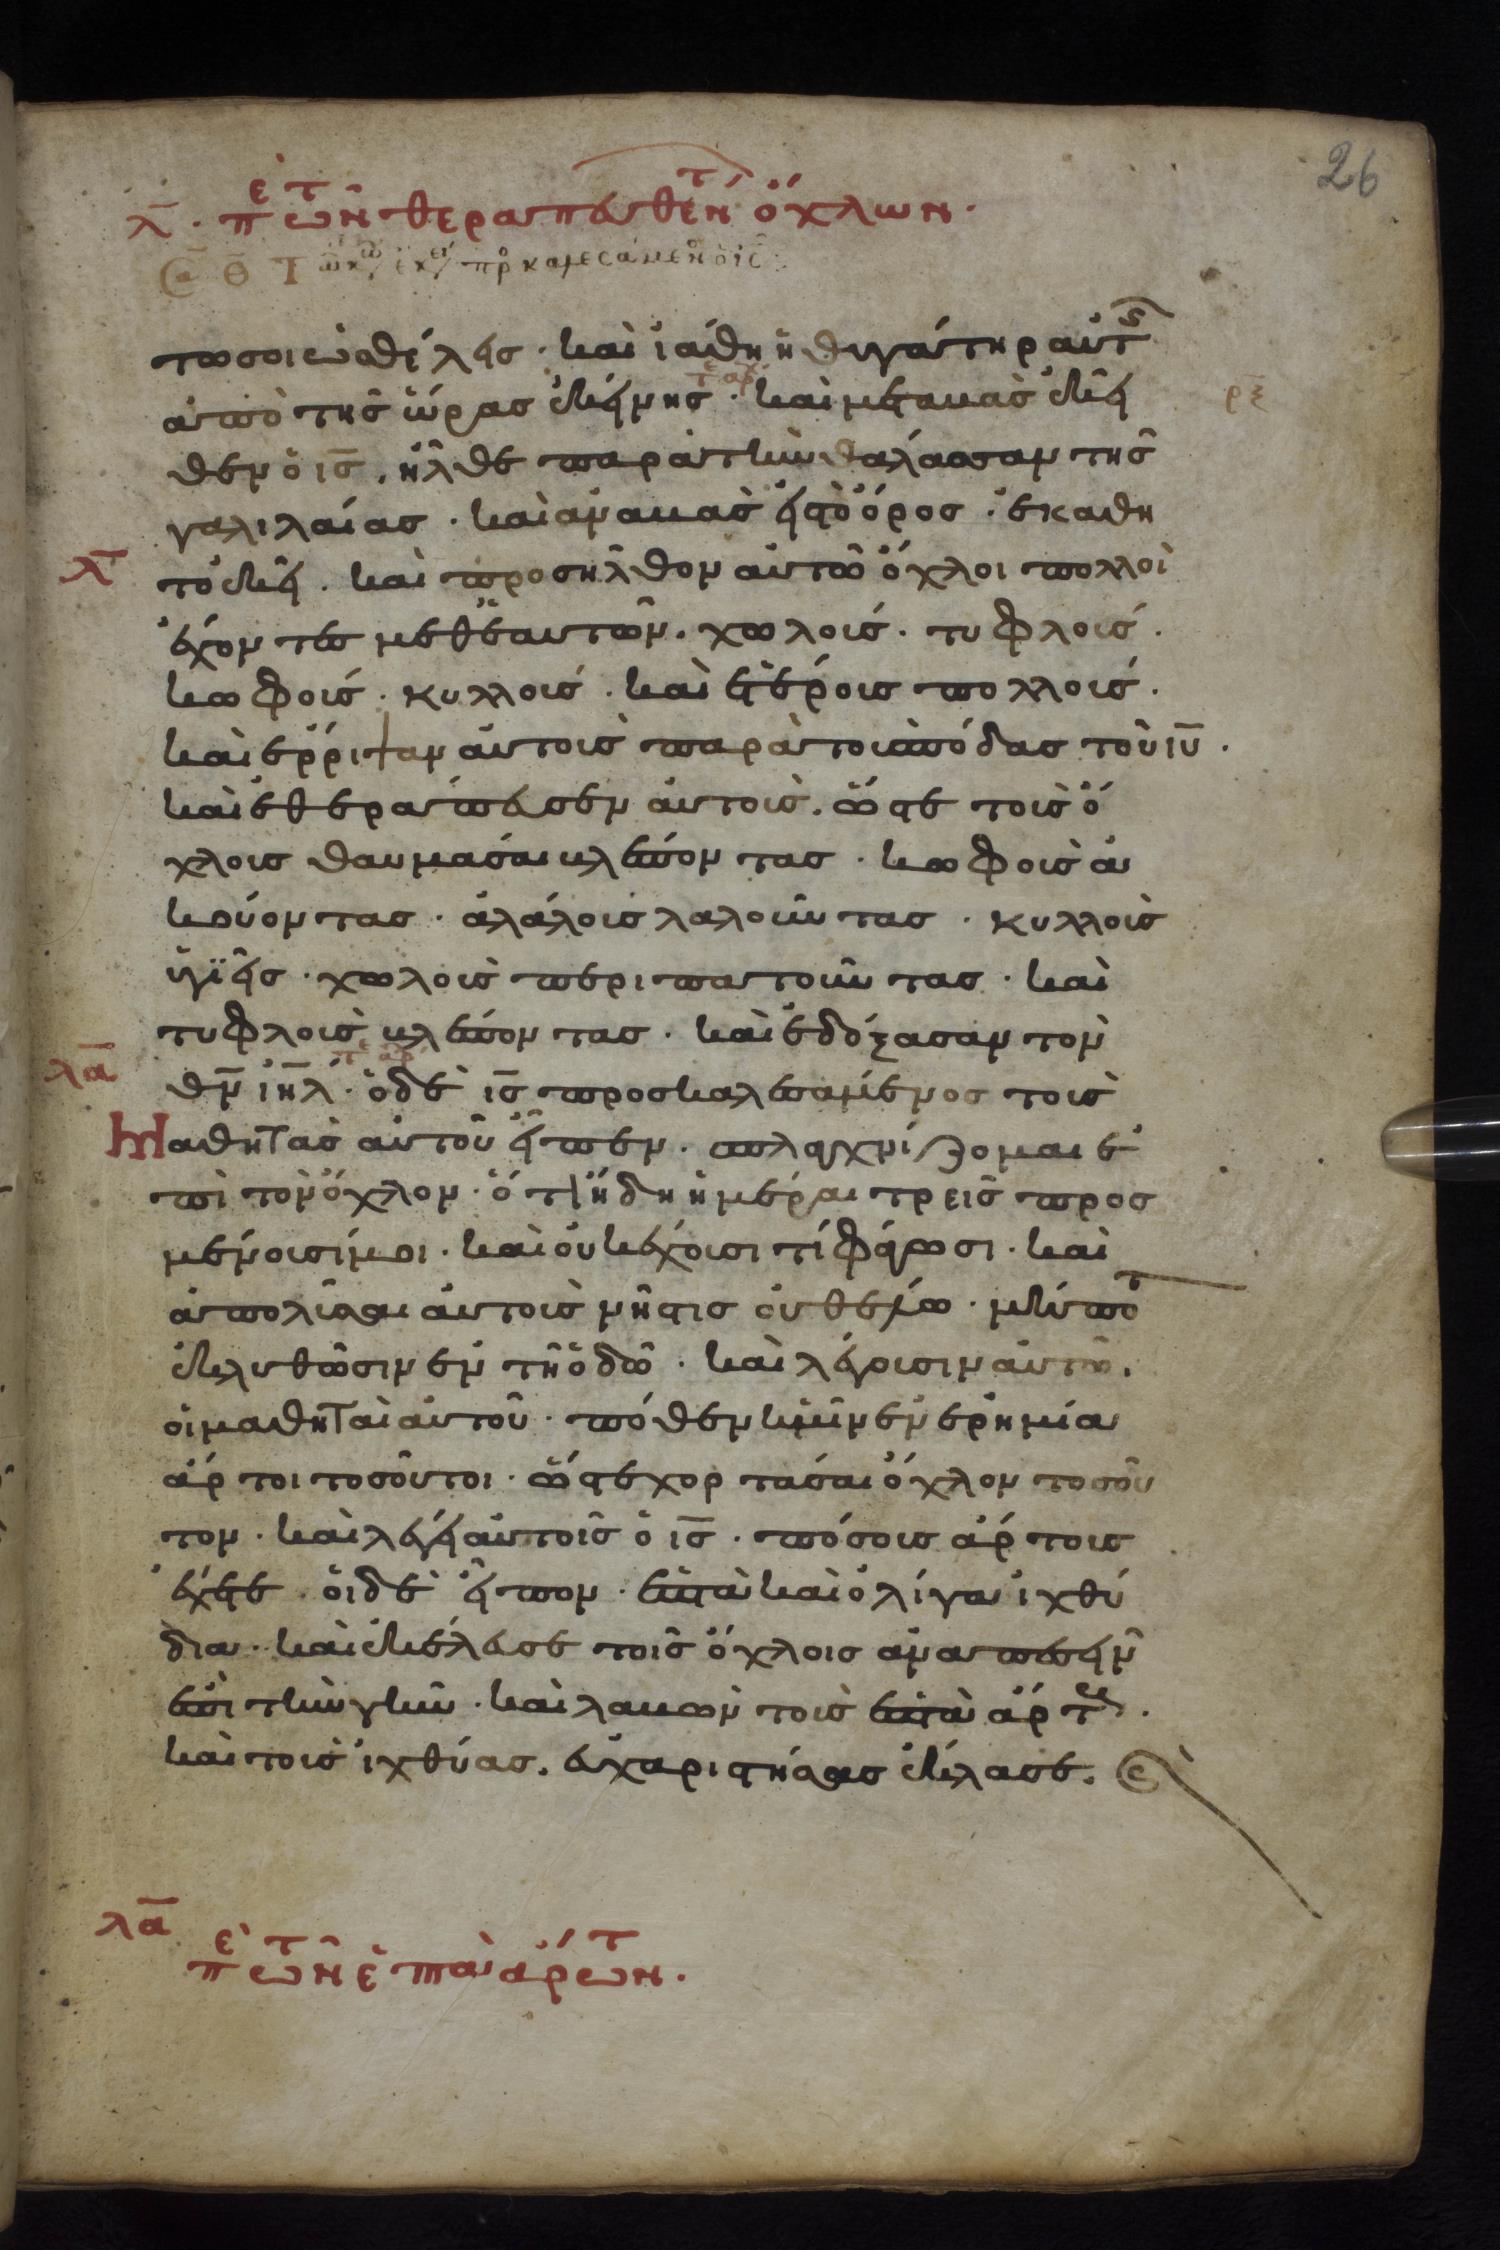 26
λ̅ · πε τ ων θεραπευθέντ ὄχλων ·
τωσοι ὡς θέλεις · καὶ ἰάθη ἡ θυγάτηρ αὐτῆς
ἀπὸ τῆς ὥρας ἐκείνης · καὶ μεταβὰς ἐκεῖ
ρξ
θεν ὁ ι̅ς̅ , ἦλθε παρὰ τὴν θάλασσαν τῆς
γαλιλαίας · καὶ ἀναβὰς εἰς τὸ ὄρος · ἐκάθη
λ̅
το ἐκεῖ . καὶ προσῆλθον αὐτῶ ὄχλοι πολλοὶ
ἔχοντες μεθ ἑαυτῶν . χωλούς · τυφλούς .
κωφούς · κυλλούς · καὶ ἑτέρους πολλούς .
καὶ ἔρριψαν αὐτοὺς παρὰ τοὺς πόδας τοῦ ι̅υ̅ .
καὶ ἐθεράπευσεν αὐτοὺς . ὥστε τοὺς ὄ
χλους θαυμάσαι βλέποντας · κωφοὺς ἀ
κούοντας · ἀλάλους λαλοῦντας · κυλλοὺς
ὑγιεῖς · χωλοὺς περιπατοῦντας · καὶ
τυφλοὺς βλέποντας · καὶ ἐδόξασαν τὸν
λα̅
θ̅ν̅ ι̅η̅λ̅ · ὁ δὲ ι̅ς̅ προσκαλεσάμενος τοὺς
Μαθητὰς αὐτοῦ εἶπεν · σπλαγχνίζομαι ἐ
πὶ τὸν ὄχλον · ὅτι ἤδη ἡμέραι τρεῖς προσ
μένουσί μοι · καὶ οὐκ ἔχουσι τί φάγωσι · καὶ
ἀπολῦσαι αὐτοὺς νήστις οὐ θέλω · μήποτ
ἐκλυθῶσιν ἐν τῆ ὁδῶ · καὶ λέγουσιν αὐτῶ .
οἱ μαθηταὶ αὐτοῦ · πόθεν ἡμῖν ἐν ἐρημία
ἄρτοι τοσοῦτοι · ὥστε χορτάσαι ὄχλον τοσοῦ
τον · καὶ λέγει αὐτοῖς ὁ ι̅ς̅ · πόσους ἄρτους
ἔχετε . οἱ δὲ εἶπον · ἑπτὰ καὶ ὀλίγα ἰχθύ
δια · καὶ ἐκέλευσε τοῖς ὄχλοις ἀναπεσεῖν
ἐπὶ τὴν γῆν · καὶ λαβὼν τοὺς ἑπτὰ ἄρτους .
καὶ τοὺς ἰχθύας . εὐχαριστήσας ἔκλασε .
λα̅ πε τ ων ἑπτὰ ἄρτων .